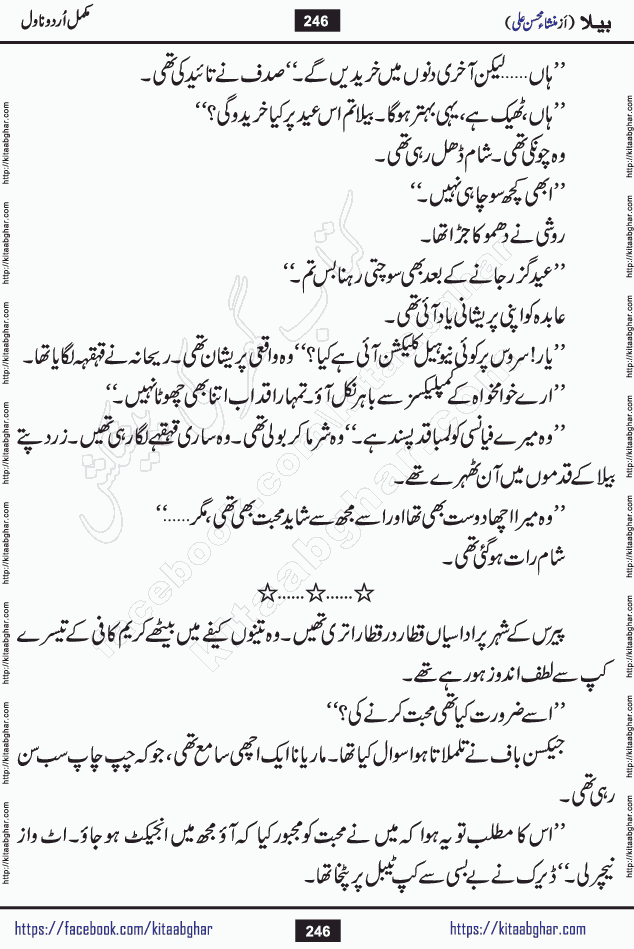 بیلا (از منشاء محسن علی) 246 مکمل اُردو ناول
’’ہاں......لیکن آخری دنوں میں خریدیں گے۔‘‘ صدف نے تائید کی تھی۔
’’ہاں، ٹھیک ہے، یہی بہتر ہوگا۔ بیلا تم اس عید پر کیا خریدو گی؟‘‘
وہ چونکی تھی۔ شام ڈھل رہی تھی۔
’’ابھی کچھ سوچا ہی نہیں۔‘‘
روشی نے دھموکا جڑا تھا۔
’’عید گزر جانے کے بعد بھی سوچتی رہنا بس تم۔‘‘
عابدہ کو اپنی پریشانی یاد آئی تھی۔
’’یار! سروس پر کوئی نیو ہیل کلیکشن آئی ہے کیا؟‘‘ وہ واقعی پریشان تھی۔ ریحانہ نے قہقہہ لگایا تھا۔
’’ارے خوامخواہ کے کمپلیکسز سے باہر نکل آؤ۔ تمہارا قد اب اتنا بھی چھوٹا نہیں۔‘‘
’’وہ میرے فیانسی کو لمبا قد پسند ہے۔‘‘ وہ شرما کر بولی تھی۔ وہ ساری قہقہے لگا رہی تھیں۔ زرد پتے
بیلا کے قدموں میں آن ٹھہرے تھے۔
’’وہ میرا اچھا دوست بھی تھا اور اسے مجھ سے شاید محبت بھی تھی، مگر......‘‘
شام رات ہو گئی تھی۔
☆......☆......☆
پیرس کے شہر پر اداسیاں قطار در قطار اتری تھیں۔ وہ تینوں کیفے میں بیٹھے کریم کافی کے تیسرے
کپ سے لطف اندوز ہو رہے تھے۔
’’اسے ضرورت کیا تھی محبت کرنے کی؟‘‘
جیکسن باف نے تلملاتا ہوا سوال کیا تھا۔ ماریانا ایک اچھی سامع تھی، جو کہ چپ چاپ سب سن
رہی تھی۔
’’اس کا مطلب تو یہ ہوا کہ میں نے محبت کو مجبور کیا کہ آؤ مجھ میں انجیکٹ ہو جاؤ۔ اٹ واز
نیچرلی۔‘‘ ڈیرک نے بے بسی سے کپ ٹیبل پر پٹخا تھا۔
https://facebook.com/kitaabghar 246 https://kitaabghar.com
http://kitaabghar.com
کتاب گھر کی پیشکش
facebook.com/kitaabghar
kitaabghar.com